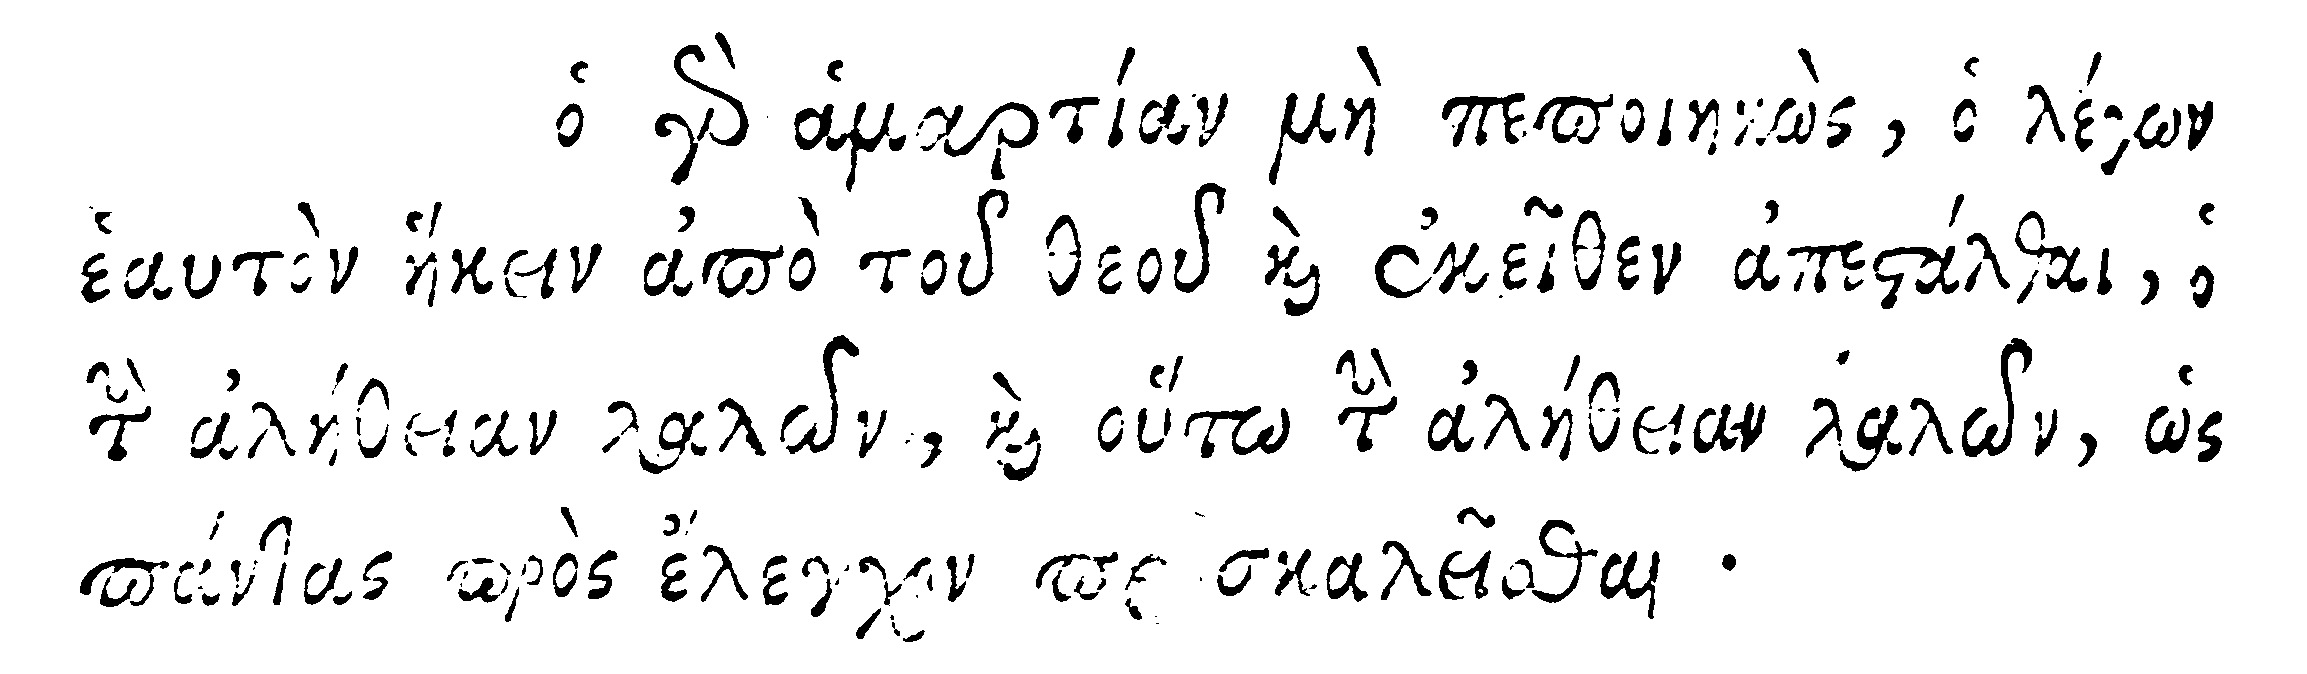 ὁ γὰρ ἁμαρτίαν μὴ πεποιηκὼς, ὁ λέγων
ἑαυτὸν ἥκειν ἀπὸ τοῦ θεοῦ καὶ ἐκεῖθεν ἀπεστάλθαι, ὁ
τὴν ἀλήθειαν λαλῶν, καὶ οὕτω τὴν ἀλήθειαν λαλῶν, ὡς
πάντας πρὸς ἔλεγχον προσκαλεῖσθαι.